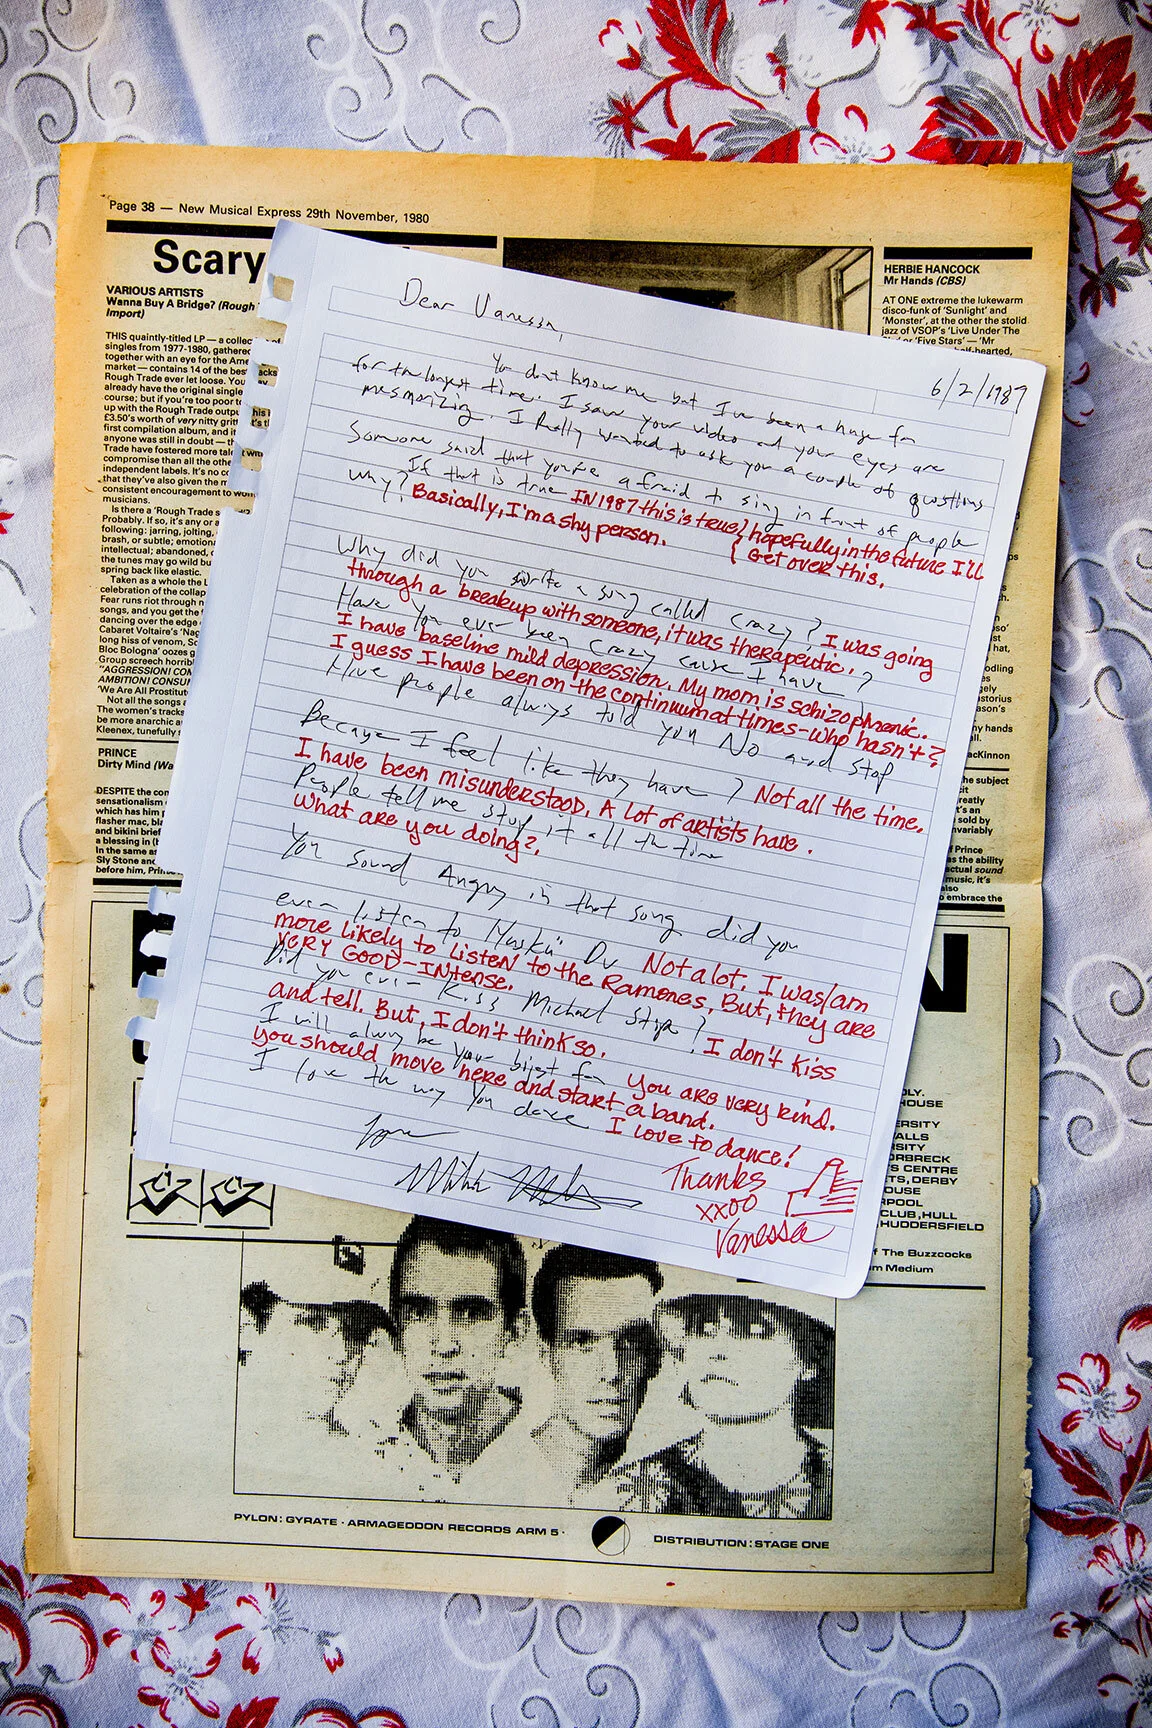 Page 38 — New Musical Express 29th November, 1980
Scary
VARIOUS ARTISTS
Wanna Buy A Bridge? (Rough
Import)
THIS quaintly-titled LP — a collection of
singles from 1977-1980, gathered
together with an eye for the Ame
market — contains 14 of the best
Rough Trade ever let loose. You
already have the original single
course; but if you're too poor to
up with the Rough Trade outpu
£3.50's worth of very nitty gritt
first compilation album, and i
anyone was still in doubt — th
Trade have fostered more tale
compromise than all the othe
independent labels. It's no co
that they've also given the m
consistent encouragement to wom
musicians.
Is there a 'Rough Trade s
Probably. If so, it's any or a
following: jarring, jolting,
brash, or subtle; emotiona
intellectual; abandoned, c
the tunes may go wild bu
spring back like elastic.
Taken as a whole the L
celebration of the collap
Fear runs riot through m
songs, and you get the f
dancing over the edge
Cabaret Voltaire's 'Nag
long hiss of venom, Sc
Bloc Bologna' oozes g
Group screech horribl
"AGGRESSION! COM
AMBITION! CONSUM
'We Are All Prostitute
Not all the songs a
The women's tracks
be more anarchic a
Kleenex, tunefully s
PRINCE
Dirty Mind (Wa
DESPITE the con
sensationalism
which has him p
flasher mac, bla
and bikini brief
a blessing in (b
In the same as
Sly Stone and
before him, Prin
HERBIE HANCOCK
Mr Hands (CBS)
AT ONE extreme the lukewarm
disco-funk of 'Sunlight' and
'Monster', at the other the stolid
jazz of VSOP's 'Live Under The
or 'Five Stars' — 'Mr
half-hearted,
acKinnon
Dear Vanessa,
6/2/1987
You dont know me but I've been a huge fan
for the longest time. I saw your video and your eyes are
mesmorizing. I Really wanted to ask you a couple of questions
Someone said that you're afraid to sing in front of people
If that is true IN 1987 this is true, hopefully in the future I'll
why? Basically, I'm a shy person. Get over this.
Why did you write a song called crazy? I was going
through a breakup with someone, it was therapeutic.
Have you ever been crazy cause I have?
I have baseline mild depression. My mom is schizophrenic.
I guess I have been on the continuum at times – who hasn't?
Have people always told you No and Stop
Because I feel like they have? Not all the time.
I have been misunderstood. A lot of artists have.
People tell me stop it all the time
What are you doing?
You sound Angry in that song did you
ever listen to Huskü Du Not a lot. I was/am
more likely to listen to the Ramones, But, they are
VERY GOOD – INtense.
Did you ever Kiss Michael Stipe? I don't kiss
and tell. But, I don't think so.
I will alway be your bigest fan You are very kind.
You should move here and start a band.
I love the way You dance I love to dance!
Love
Mike
Thanks
xxoo
Vanessa
DLY.
HOUSE
ERSITY
ALLS
RSITY
ORBRECK
S CENTRE
TS, DERBY
OUSE
RPOOL
CLUB, HULL
HUDDERSFIELD
f The Buzzcocks
m Medium
PYLON: GYRATE · ARMAGEDDON RECORDS ARM 5 ·
DISTRIBUTION: STAGE ONE